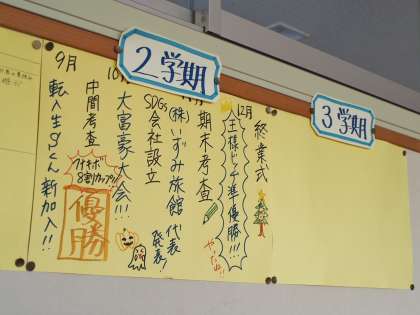 2学期
3学期
9月
転入生Sくん新加入!!
中間考査
アオキボ
8割カップ
優勝
10
大富豪大会!!!
SDGs
会社設立
(株)いずみ旅館
代表
発表!
期末考査
12月
王様ドッヂ準優勝!!!
やったね!!
終業式